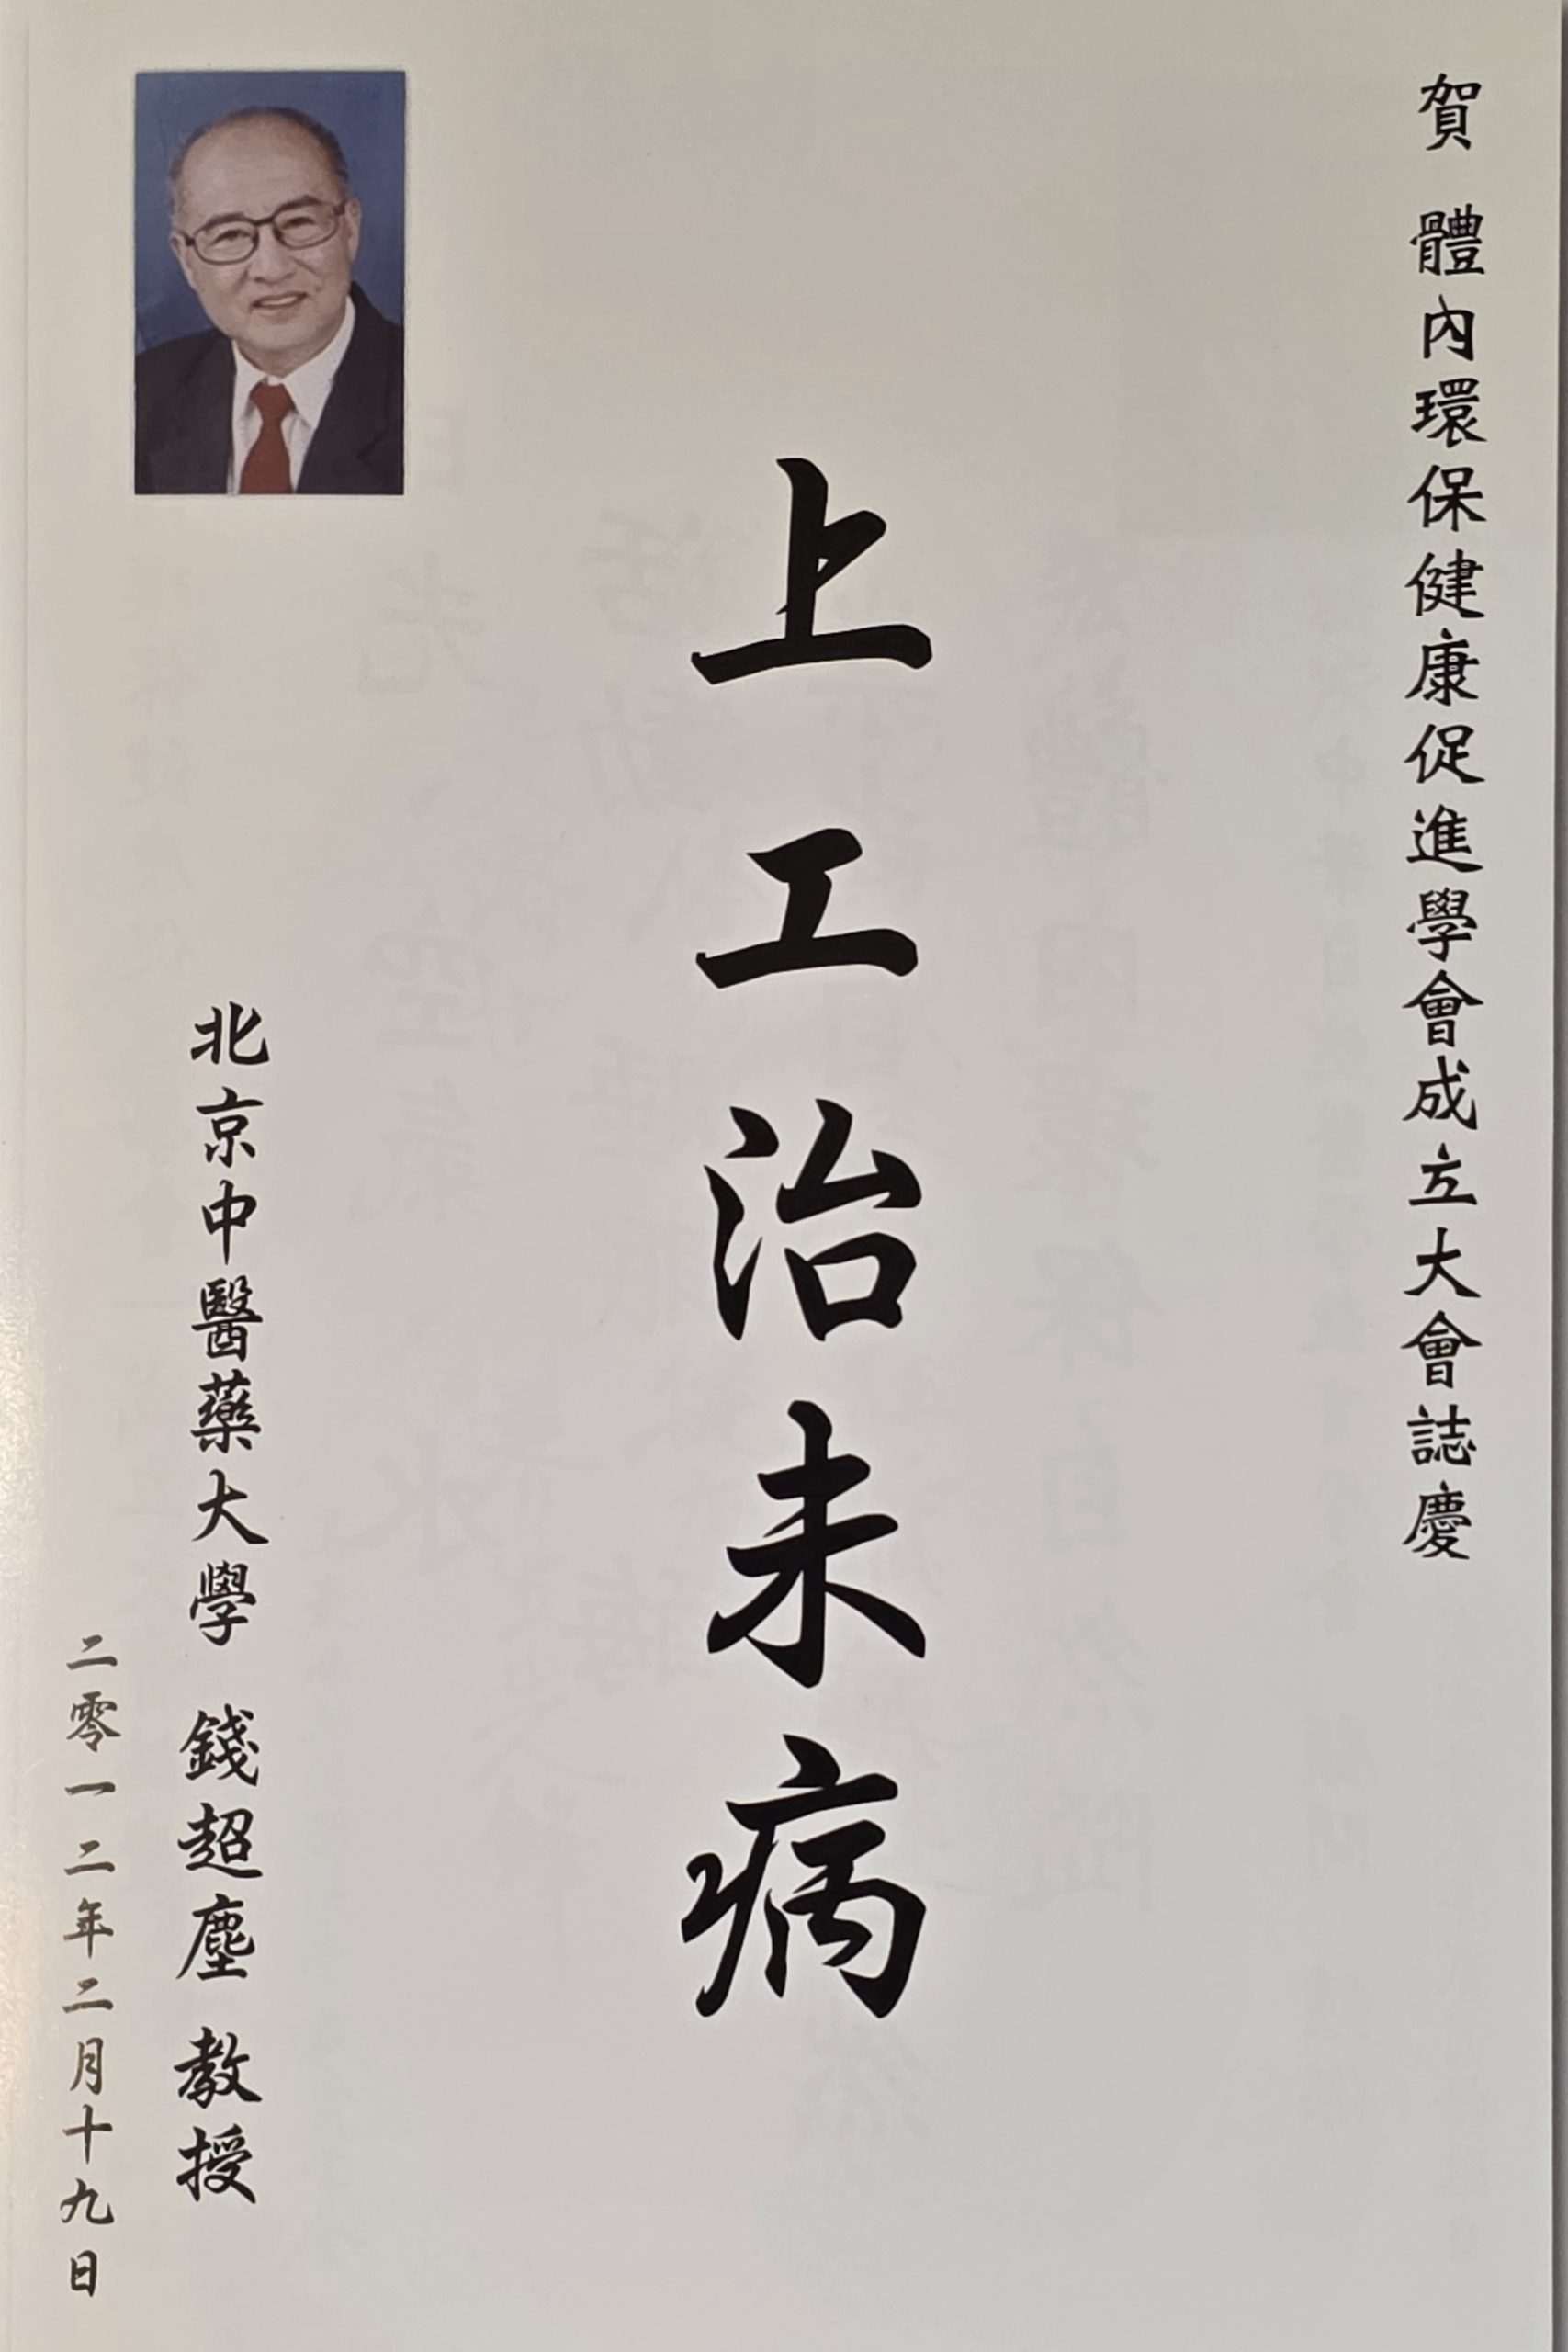 賀 體內環保健康促進學會成立大會誌慶
上工治未病
北京中醫藥大學 錢超塵 教授
二零一二年二月十九日